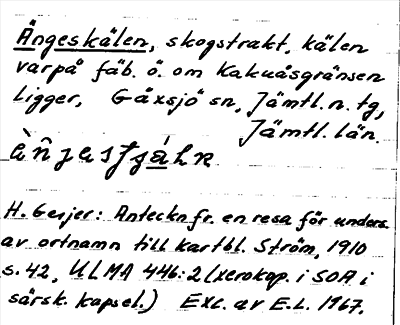 Ångeskälen, skogstrakt, kälen
varpå fäb. ö. om Kakuåsgränsen
ligger, Gåxsjö sn, Jämtl. n. tg,
Jämtl. län.
H. Geijer: Anteckn fr. en resa för unders.
av ortnamn till kartbl. Ström, 1910
s. 42, ULMA 446:2 (xerokop. i SOA i
särsk. kapsel.) Exc. av E.L. 1967.